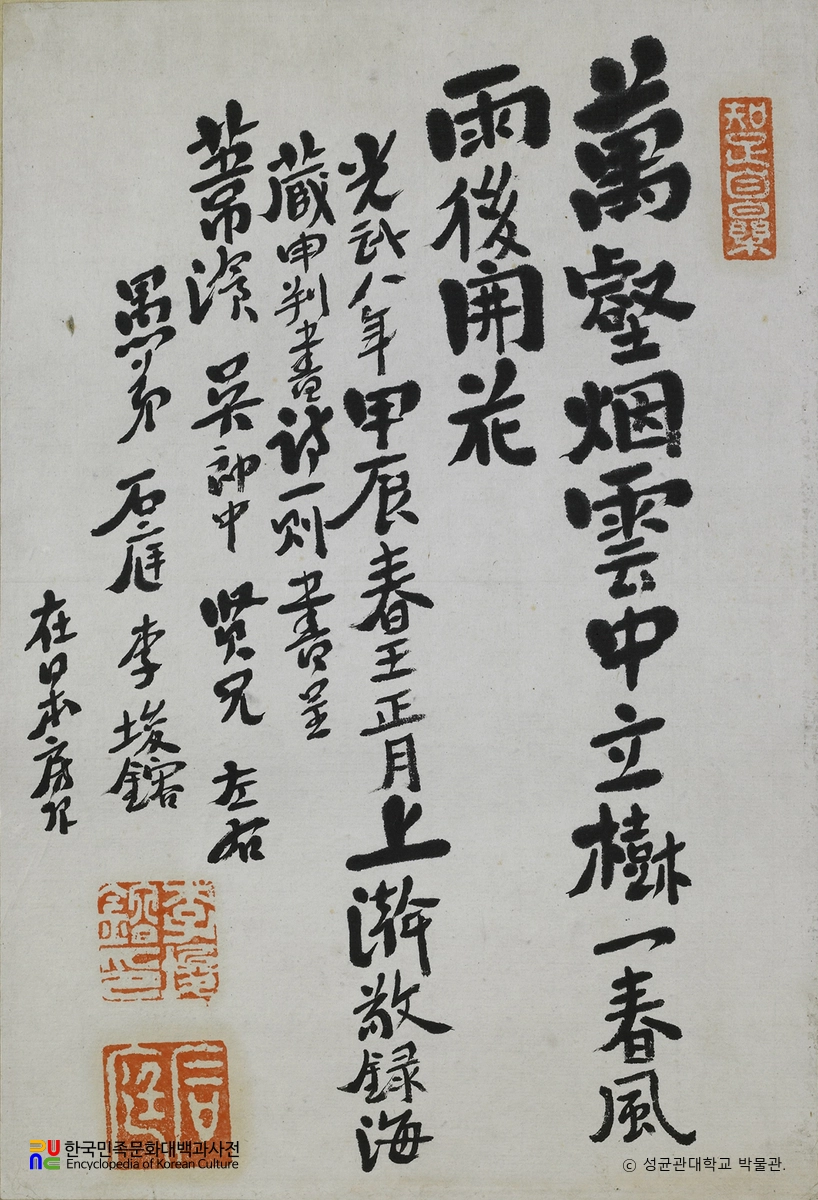 知足自樂
萬壑烟雲中立樹一春風
雨後開花
光武八年甲辰春王正月上澣敬錄海
藏申判書詩一則書呈
葦滄吳郎中賢兄左右
愚弟石庭李埈鎔
在日本房
李埈鎔印
石庭
한국민족문화대백과사전
Encyclopedia of Korean Culture
© 성균관대학교 박물관.